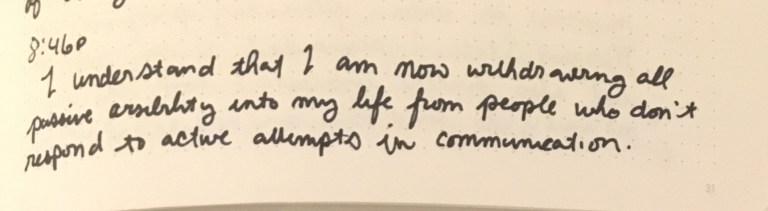 8:46p
I understand that I am now withdrawing all
passive into my life from people who don't
respond to active attempts in communication.
31